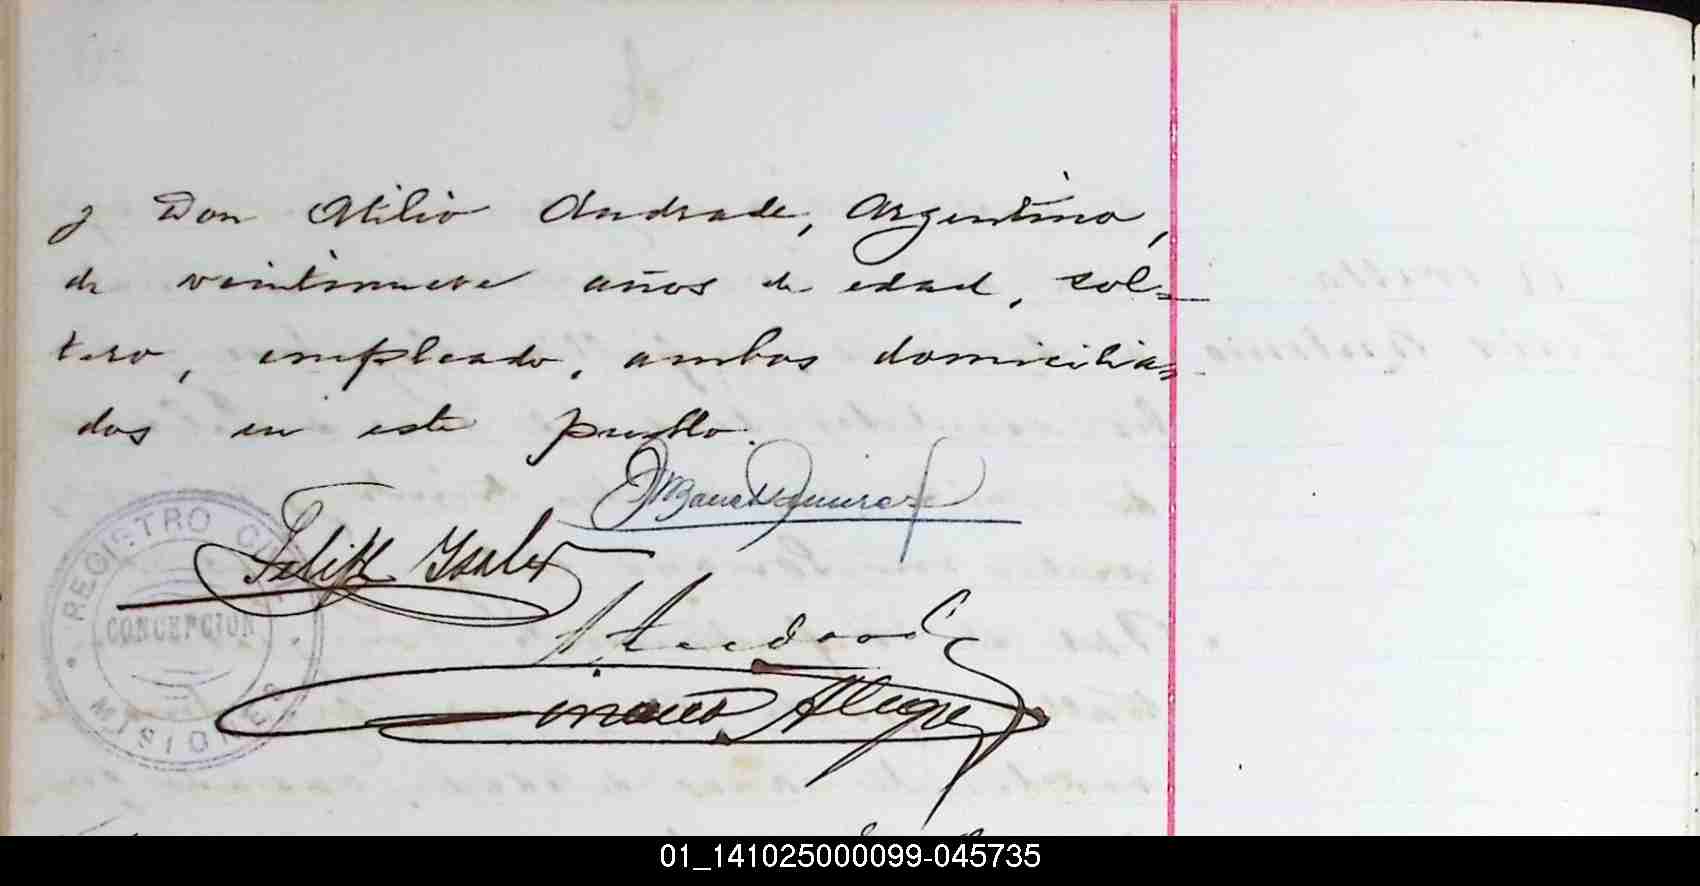 y Don Atilio Andrade, Argentino,
de veintinueve años de edad, sol-
tero, empleado, ambos domicilia-
dos en este pueblo.
Felipe
Alegre
REGISTRO CIVIL
CONCEPCION
MISIONES
01_141025000099-045735